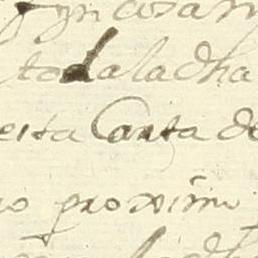 toda la dha
esta Carta de
io proximi